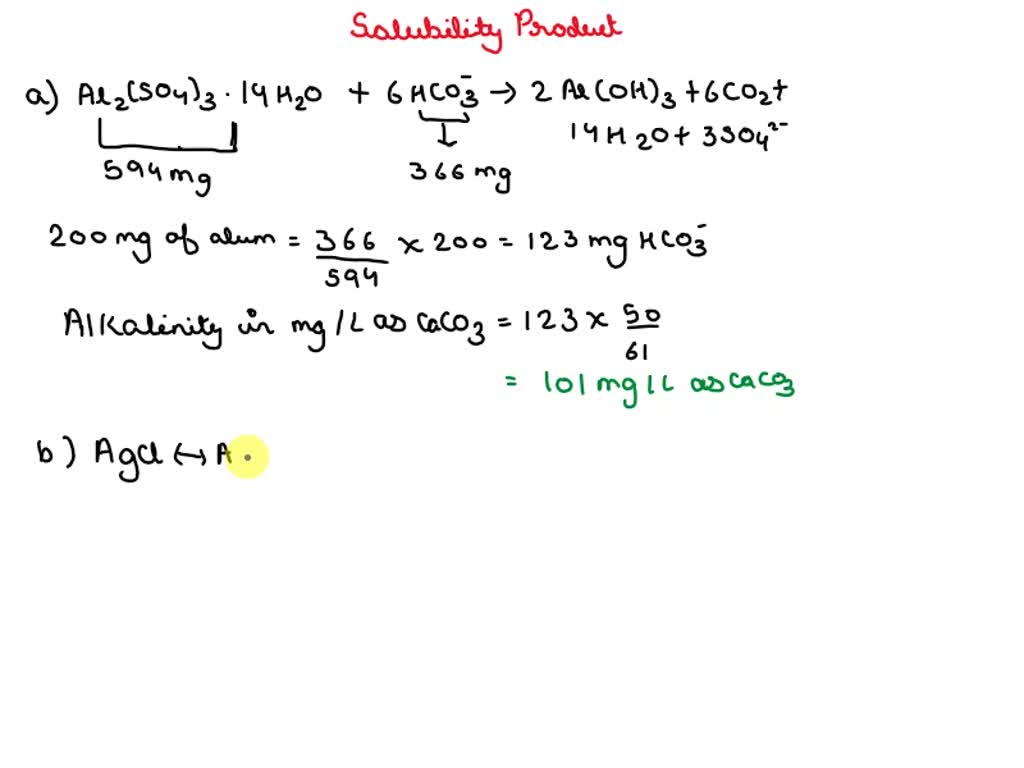 Solubility Product
a) Al₂(SO₄)₃ · 14H₂O + 6HCO₃⁻ → 2Al(OH)₃ + 6CO₂ +
14H₂O + 3SO₄²⁻
594mg 366 mg
200mg of alum = 366/594 × 200 = 123 mg HCO₃⁻
Alkalinity in mg/L as CaCO₃ = 123 × 50/61
= 101 mg/L as CaCO₃
b) AgCl ↔ A